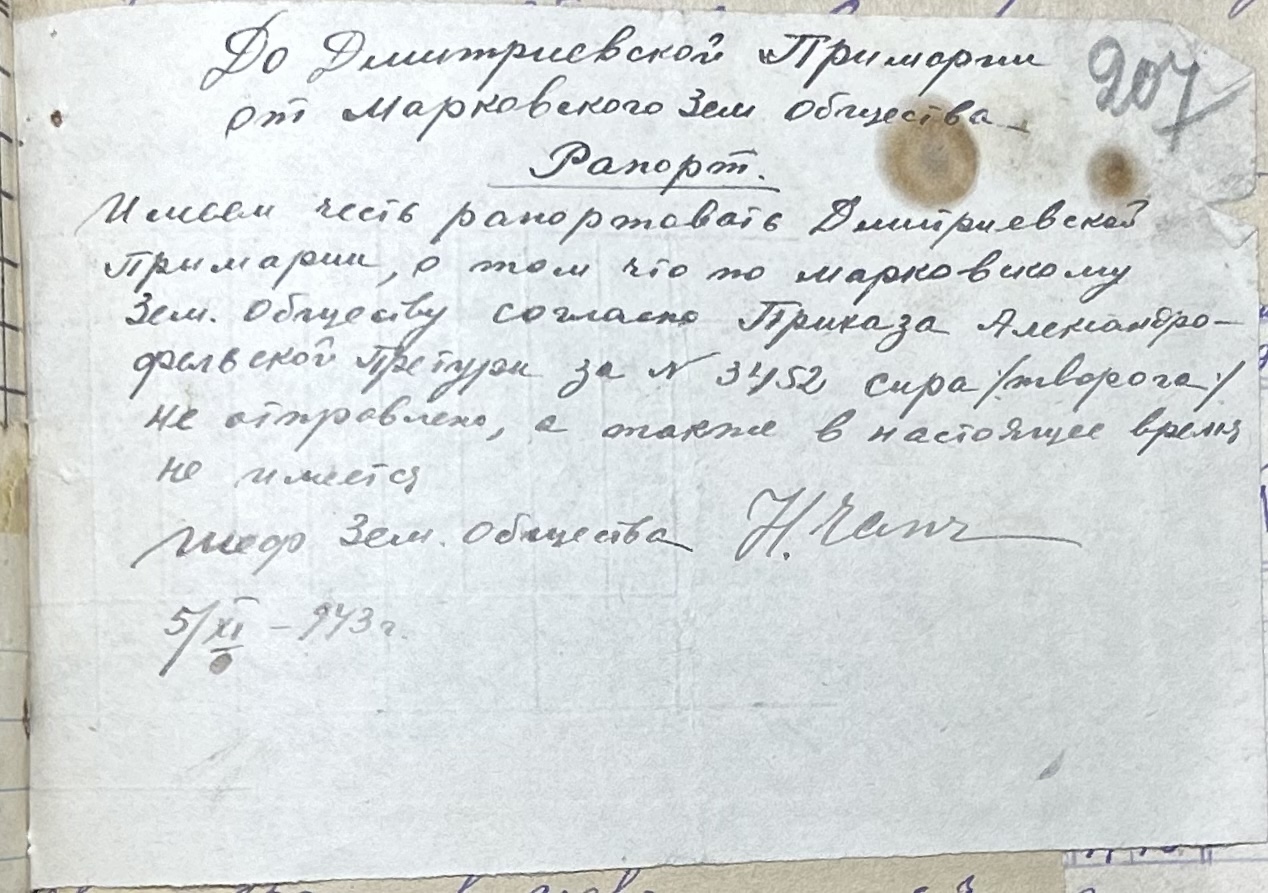 До Дмитриевской Примарии
207
от Марковского Зем Общества
Рапорт.
Имеем честь рапортовать Дмитриевской
Примарии, о том что по марковскому
Зем. Обществу согласно Приказа Александро-
фельской Претуры за № 3452 сира /творога/
не отправлено, а также в настоящее время
не имеется
Шеф Зем. Общества Н.
5/XI - 943 г.